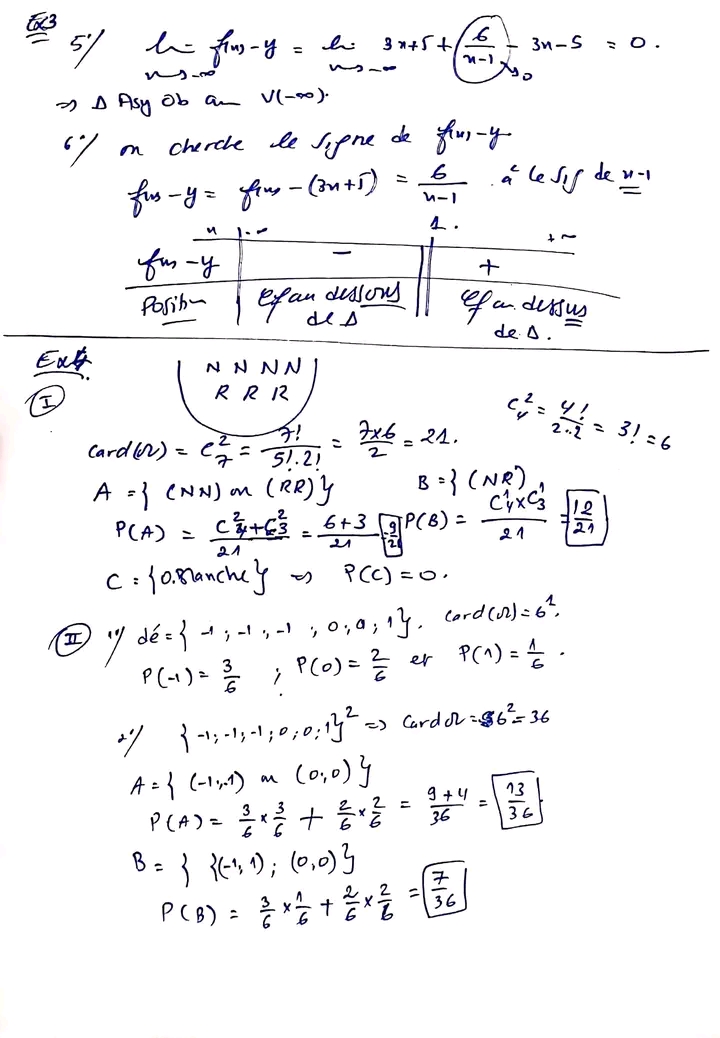 Ex3
5°/ lim f(x)-y = lim 3x+5+ 6/(x-1) - 3x-5 = 0.
x→-∞ x→-∞ →0
⇒ Δ Asy Ob au V(-∞).
6°/ on cherche le signe de f(x)-y
f(x)-y = f(x)-(3x+5) = 6/(x-1) . à le sig de x-1
x | -∞ 1. +∞
f(x)-y | - || +
Position | Cf au dessous de Δ || Cf au dessus de Δ.
Ex4
N N N N
R R R
I
card(Ω) = C₇² = 7!/(5!.2!) = 7x6/2 = 21.
C₄² = 4!/(2.2) = 3! = 6
A = { (NN) ou (RR)} B = { (NR)
P(A) = (C₄²+C₃²)/21 = (6+3)/21 = 9/21 P(B) = (C₄¹xC₃¹)/21 = 12/21
C = {0.Blanche} ⇒ P(C) = 0.
II 1°/ dé = { -1 ; -1 ; -1 ; 0 ; 0 ; 1}. Card(Ω) = 6¹.
P(-1) = 3/6 ; P(0) = 2/6 et P(1) = 1/6 .
2°/ { -1; -1; -1; 0; 0; 1}² ⇒ Card Ω = 6² = 36
A = { (-1;-1) ou (0;0) }
P(A) = 3/6 x 3/6 + 2/6 x 2/6 = (9+4)/36 = 13/36
B = { {(-1, 1); (0,0)}
P(B) = 3/6 x 1/6 + 2/6 x 2/6 = 7/36